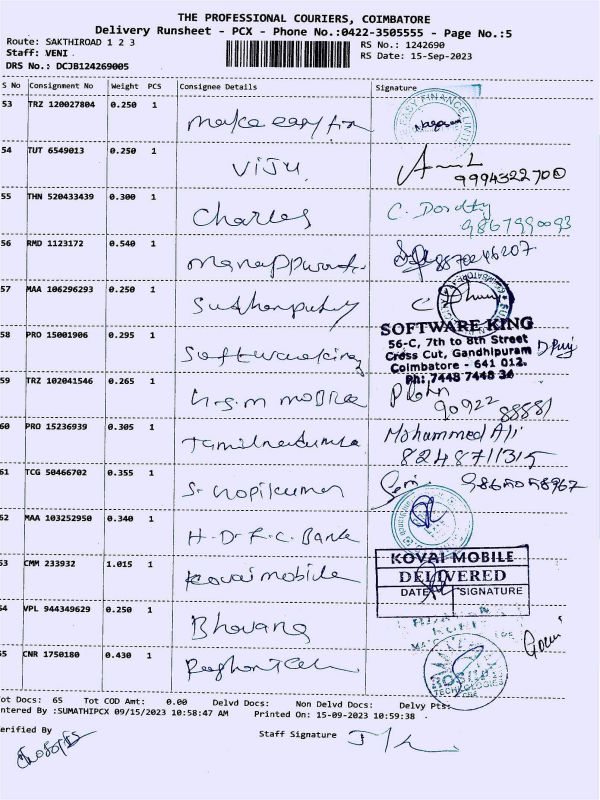 THE PROFESSIONAL COURIERS, COIMBATORE
Delivery Runsheet - PCX - Phone No.:0422-3505555 - Page No.:5
Route: SAKTHIROAD 1 2 3
Staff: VENI
DRS No.: DCJB124269005
RS No.: 1242690
RS Date: 15-Sep-2023
S No Consignment No Weight PCS Consignee Details Signature
53 TRZ 120027804 0.250 1 make easy fin
EASY FINANCE
54 TUT 6549013 0.250 1 VIJU
9994322700
55 THN 520433439 0.300 1 Charles C. Dorothy
9867990093
56 RMD 1123172 0.540 1 8870246207
57 MAA 106296293 0.250 1
58 PRO 15001906 0.295 1 Softwareking
SOFTWARE KING
56-C, 7th to 8th Street
Cross Cut, Gandhipuram
Coimbatore - 641 012.
Ph: 7448 7448 34
59 TRZ 102041546 0.265 1
90922 88881
60 PRO 15236939 0.305 1 Mohammed Ali
8248711315
61 TCG 50466702 0.355 1 S. Gopikumar
62 MAA 103252950 0.340 1 H.D.F.C. Bank
63 CMM 233932 1.015 1 Kovai mobile
KOVAI MOBILE
DELIVERED
DATE SIGNATURE
64 VPL 944349629 0.250 1
65 CNR 1750180 0.430 1
TECHNOLOGIES
Tot Docs: 65 Tot COD Amt: 0.00 Delvd Docs: Non Delvd Docs: Delvy Pts:
ntered By :SUMATHIPCX 09/15/2023 10:58:47 AM Printed On: 15-09-2023 10:59:38
erified By
Staff Signature